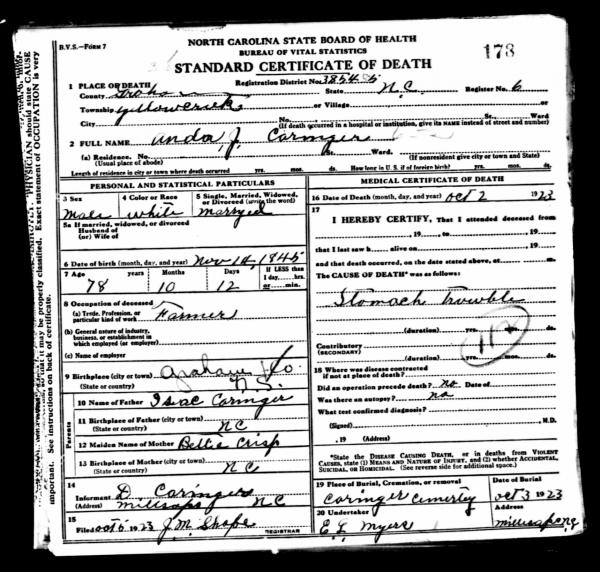 B.V.S.—FORM 7
NORTH CAROLINA STATE BOARD OF HEALTH
BUREAU OF VITAL STATISTICS
STANDARD CERTIFICATE OF DEATH
173
1 PLACE OF DEATH
Registration District No. 3854
County State N.C. Register No. 6
Township Yellowcreek or Village or
City No. St. Ward
(If death occurred in a hospital or institution, give its NAME instead of street and number)
2 FULL NAME anda J. Caringer
(a) Residence. No. St. Ward.
(Usual place of abode) (If nonresident give city or town and State)
Length of residence in city or town where death occurred yrs. mos. ds. How long in U. S. if of foreign birth? yrs. mos. ds.
PERSONAL AND STATISTICAL PARTICULARS
3 Sex 4 Color or Race 5 Single, Married, Widowed, or Divorced (write the word)
Male white
5a If married, widowed, or divorced
Husband of
(or) Wife of
6 Date of birth (month, day, and year) Nov 14, 1845
7 Age years Months Days If LESS than 1 day, hrs. or min.
78 10 12
8 Occupation of deceased
(a) Trade, Profession, or particular kind of work Farmer
(b) General nature of industry, business, or establishment in which employed (or employer)
(c) Name of employer
9 Birthplace (city or town) Graham Co
(State or country)
Parents
10 Name of Father Isac Caringer
11 Birthplace of Father (city or town)
(State or country) NC
12 Maiden Name of Mother Bettie Crisp
13 Birthplace of Mother (city or town)
(State or country) NC
14
Informant D. Caringer
(Address) Millsaps NC
15
Filed oct 6 1923 J.M. Shope
REGISTRAR
MEDICAL CERTIFICATE OF DEATH
16 Date of Death (month, day, and year) oct 2 1923
17
I HEREBY CERTIFY, That I attended deceased from
, 19 , to , 19
that I last saw h alive on , 19
and that death occurred, on the date stated above, at m.
The CAUSE OF DEATH* was as follows:
Stomach Trouble
(duration) yrs. mos. ds.
Contributory
(SECONDARY)
(duration) yrs. mos. ds.
18 Where was disease contracted
if not at place of death?
Did an operation precede death? no Date of
Was there an autopsy? no
What test confirmed diagnosis?
(Signed) , M.D.
, 19 (Address)
*State the DISEASE CAUSING DEATH, or in deaths from VIOLENT CAUSES, state (1) MEANS AND NATURE OF INJURY, and (2) whether ACCIDENTAL, SUICIDAL, OR HOMICIDAL. (See reverse side for additional space.)
19 Place of Burial, Cremation, or removal Date of Burial
Caringer Cimertey oct 3 1923
20 Undertaker Address
E. L. Myers Millsaps NC
PHYSICIAN should state CAUSE
properly classified. Exact statement of OCCUPATION is very
important. See instructions on back of certificate.